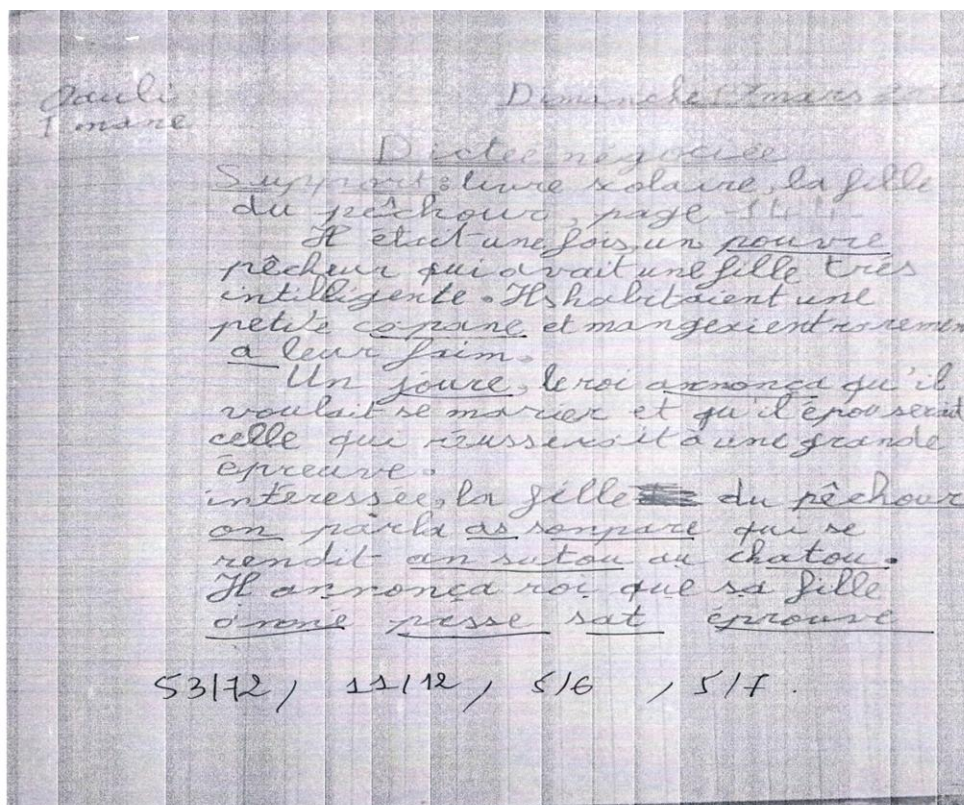 Dimanche 17 mars
Dictée négociée
Support : livre scolaire, la fille
du pêchour, page 144
Il était une fois, un pouvre
pêcheur qui avait une fille très
intilligente. Ils habitaient une
petite capane et mangeaient raremen
a leur faim.
Un joure, le roi annonça qu'il
voulait se marier et qu'il épouserait
celle qui réusserait à une grande
épreuve.
interessée, la fille du pêchour
on parla as sonpare qui se
rendit an sutou au chatou.
Il annonça roi que sa fille
passe sat éprouve
53/72, 11/12, 5/6, 5/7.